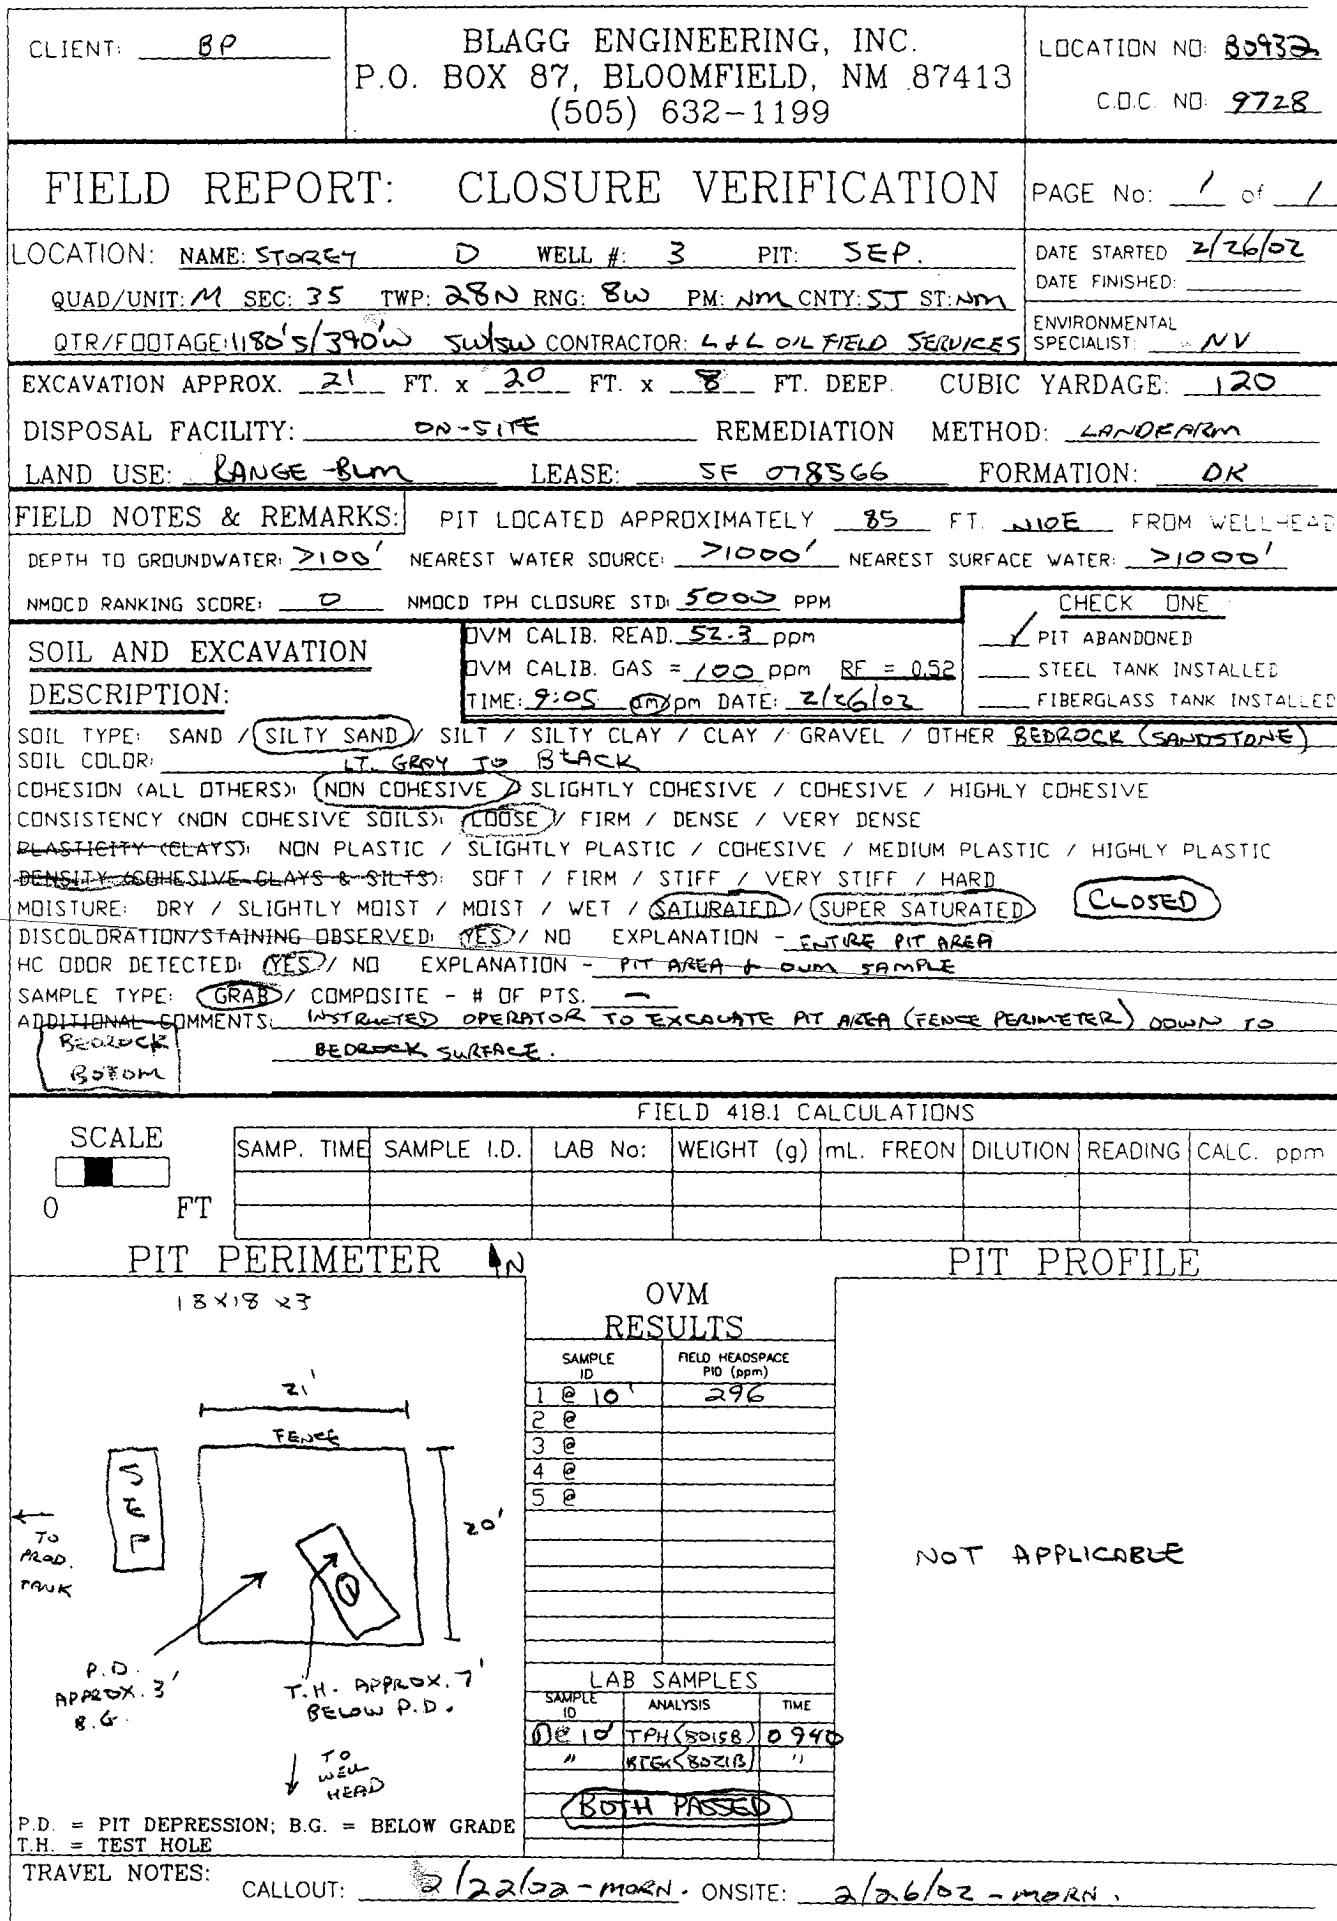 CLIENT: BP
BLAGG ENGINEERING, INC.
P.O. BOX 87, BLOOMFIELD, NM 87413
(505) 632-1199
LOCATION NO: B0932
C.O.C. NO: 9728
FIELD REPORT: CLOSURE VERIFICATION
PAGE No: 1 of 1
LOCATION: NAME: STOREY D WELL #: 3 PIT: SEP.
QUAD/UNIT: M SEC: 35 TWP: 28N RNG: 8W PM: NM CNTY: SJ ST: NM
QTR/FOOTAGE: 1180'S/390'W SW/SW CONTRACTOR: L & L OIL FIELD SERVICES
DATE STARTED 2/26/02
DATE FINISHED:
ENVIRONMENTAL
SPECIALIST: NV
EXCAVATION APPROX. 21 FT. x 20 FT. x 8 FT. DEEP. CUBIC YARDAGE: 120
DISPOSAL FACILITY: ON-SITE REMEDIATION METHOD: LANDFARM
LAND USE: RANGE - BLM LEASE: SF 078566 FORMATION: DK
FIELD NOTES & REMARKS: PIT LOCATED APPROXIMATELY 85 FT. N10E FROM WELLHEAD
DEPTH TO GROUNDWATER: >100' NEAREST WATER SOURCE: >1000' NEAREST SURFACE WATER: >1000'
NMOCD RANKING SCORE: 0 NMOCD TPH CLOSURE STD: 5000 PPM
CHECK ONE
✓ PIT ABANDONED
STEEL TANK INSTALLED
FIBERGLASS TANK INSTALLED
SOIL AND EXCAVATION
DESCRIPTION:
OVM CALIB. READ. 52.3 ppm
OVM CALIB. GAS = 100 ppm RF = 0.52
TIME: 9:05 am/pm DATE: 2/26/02
SOIL TYPE: SAND / SILTY SAND / SILT / SILTY CLAY / CLAY / GRAVEL / OTHER BEDROCK (SANDSTONE)
SOIL COLOR: LT. GRAY TO BLACK
COHESION (ALL OTHERS): NON COHESIVE / SLIGHTLY COHESIVE / COHESIVE / HIGHLY COHESIVE
CONSISTENCY (NON COHESIVE SOILS): LOOSE / FIRM / DENSE / VERY DENSE
PLASTICITY (CLAYS): NON PLASTIC / SLIGHTLY PLASTIC / COHESIVE / MEDIUM PLASTIC / HIGHLY PLASTIC
DENSITY (COHESIVE CLAYS & SILTS): SOFT / FIRM / STIFF / VERY STIFF / HARD
MOISTURE: DRY / SLIGHTLY MOIST / MOIST / WET / SATURATED / SUPER SATURATED CLOSED
DISCOLORATION/STAINING OBSERVED: YES / NO EXPLANATION - ENTIRE PIT AREA
HC ODOR DETECTED: YES / NO EXPLANATION - PIT AREA & OVM SAMPLE
SAMPLE TYPE: GRAB / COMPOSITE - # OF PTS. —
ADDITIONAL COMMENTS: INSTRUCTED OPERATOR TO EXCAVATE PIT AREA (FENCE PERIMETER) DOWN TO
BEDROCK SURFACE.
BEDROCK
BOTTOM
FIELD 418.1 CALCULATIONS
SCALE
0 FT
SAMP. TIME SAMPLE I.D. LAB No: WEIGHT (g) mL. FREON DILUTION READING CALC. ppm
PIT PERIMETER N
PIT PROFILE
18 x 18 x 3
21'
FENCE
SEP
20'
TO
PROD.
TANK
P.D.
APPROX. 3'
B.G.
T.H. APPROX. 7'
BELOW P.D.
TO
WELL
HEAD
P.D. = PIT DEPRESSION; B.G. = BELOW GRADE
T.H. = TEST HOLE
OVM
RESULTS
SAMPLE ID FIELD HEADSPACE PID (ppm)
1 @ 10' 296
2 @
3 @
4 @
5 @
LAB SAMPLES
SAMPLE ID ANALYSIS TIME
1 @ 10' TPH (8015B) 0940
" BTEX (8021B) "
BOTH PASSED
NOT APPLICABLE
TRAVEL NOTES: CALLOUT: 2/22/02 - MORN. ONSITE: 2/26/02 - MORN.